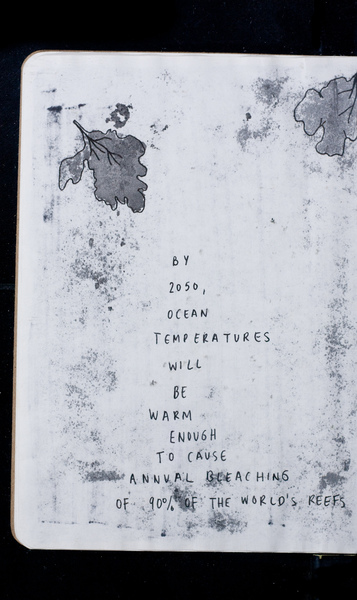 BY
2050,
OCEAN
TEMPERATURES
WILL
BE
WARM
ENOUGH
TO CAUSE
ANNUAL BLEACHING
OF 90% OF THE WORLD'S REEFS